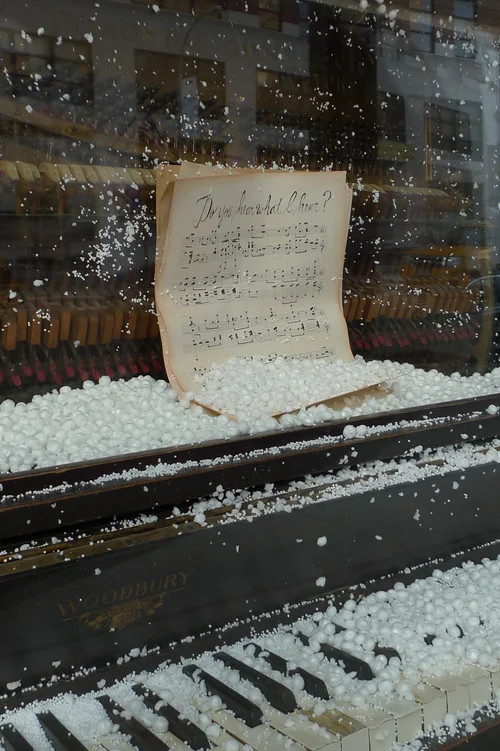 Do you hear what I hear?
WOODBURY